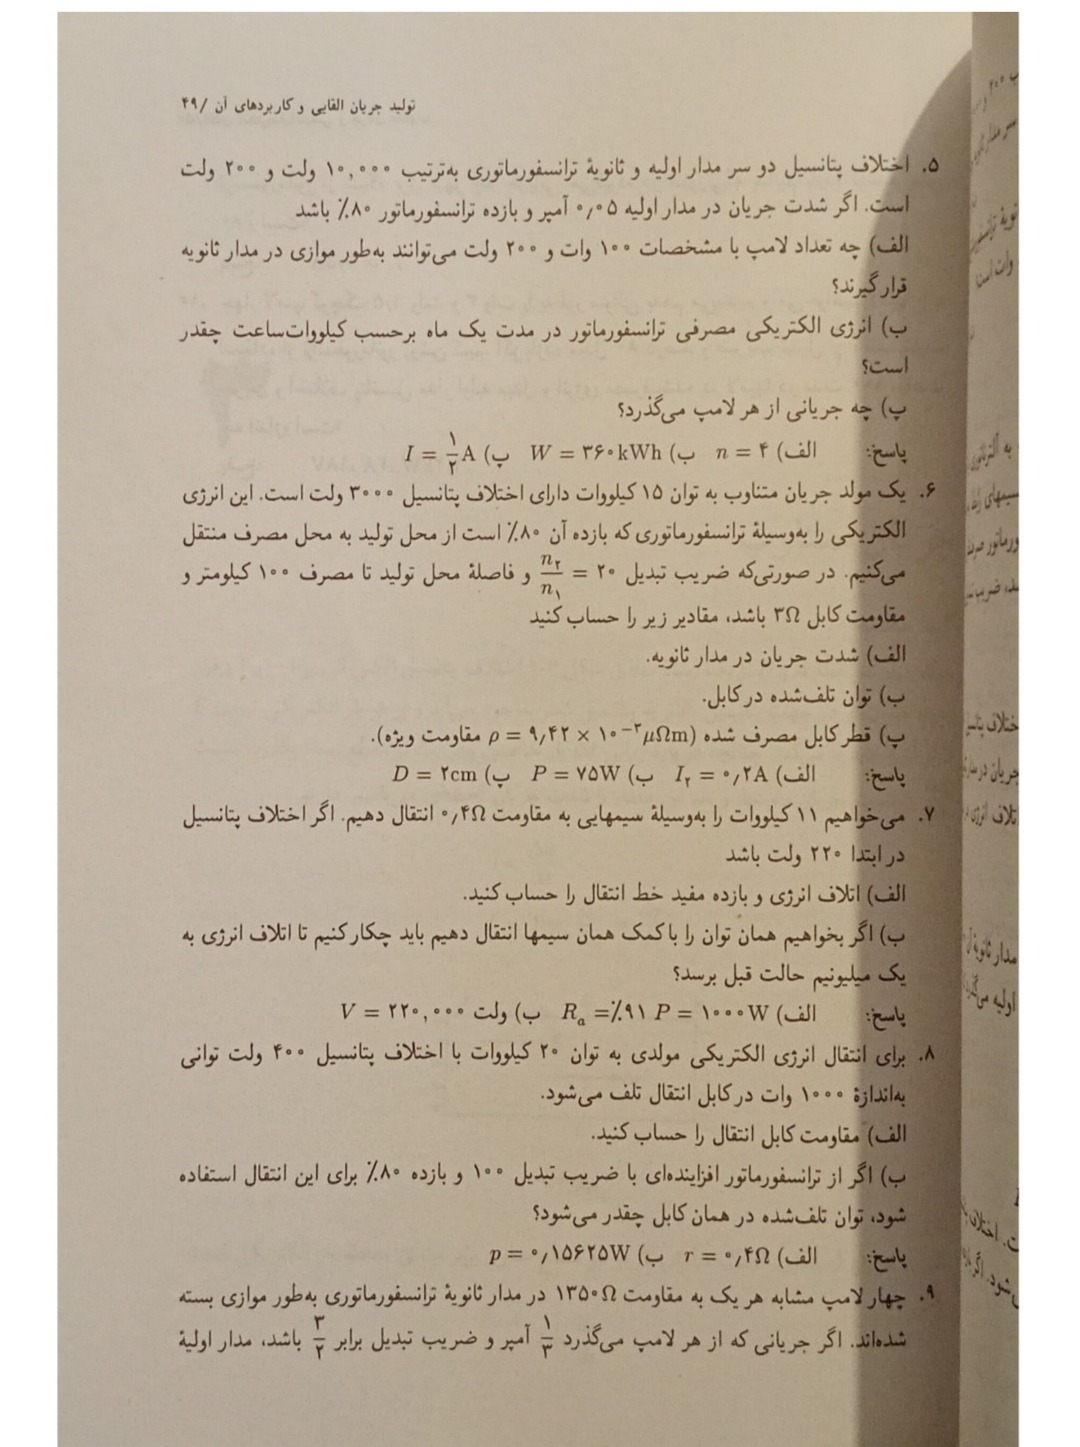 تولید جریان القایی و کاربردهای آن /۴۹
۵. اختلاف پتانسیل دو سر مدار اولیه و ثانویهٔ ترانسفورماتوری به‌ترتیب ۱۰,۰۰۰ ولت و ۲۰۰ ولت
است. اگر شدت جریان در مدار اولیه ۰٫۰۵ آمپر و بازده ترانسفورماتور ۸۰٪ باشد
الف) چه تعداد لامپ با مشخصات ۱۰۰ وات و ۲۰۰ ولت می‌توانند به‌طور موازی در مدار ثانویه
قرار گیرند؟
ب) انرژی الکتریکی مصرفی ترانسفورماتور در مدت یک ماه برحسب کیلووات‌ساعت چقدر
است؟
پ) چه جریانی از هر لامپ می‌گذرد؟
پاسخ: الف) n = ۴ ب) W = ۳۶۰kWh پ) I = ۱/۲ A
۶. یک مولد جریان متناوب به توان ۱۵ کیلووات دارای اختلاف پتانسیل ۳۰۰۰ ولت است. این انرژی
الکتریکی را به‌وسیلهٔ ترانسفورماتوری که بازده آن ۸۰٪ است از محل تولید به محل مصرف منتقل
می‌کنیم. در صورتی‌که ضریب تبدیل n₂/n₁ = ۲۰ و فاصلهٔ محل تولید تا مصرف ۱۰۰ کیلومتر و
مقاومت کابل ۳Ω باشد، مقادیر زیر را حساب کنید
الف) شدت جریان در مدار ثانویه.
ب) توان تلف‌شده در کابل.
پ) قطر کابل مصرف شده (ρ = ۹٫۴۲ × ۱۰⁻۳ μΩm مقاومت ویژه).
پاسخ: الف) I₂ = ۰٫۲A ب) P = ۷۵W پ) D = ۲cm
۷. می‌خواهیم ۱۱ کیلووات را به‌وسیلهٔ سیمهایی به مقاومت ۰٫۴Ω انتقال دهیم. اگر اختلاف پتانسیل
در ابتدا ۲۲۰ ولت باشد
الف) اتلاف انرژی و بازده مفید خط انتقال را حساب کنید.
ب) اگر بخواهیم همان توان را با کمک همان سیمها انتقال دهیم باید چکار کنیم تا اتلاف انرژی به
یک میلیونیم حالت قبل برسد؟
پاسخ: الف) P = ۱۰۰۰W Rₐ =٪۹۱ ب) ولت V = ۲۲۰,۰۰۰
۸. برای انتقال انرژی الکتریکی مولدی به توان ۲۰ کیلووات با اختلاف پتانسیل ۴۰۰ ولت توانی
به‌اندازهٔ ۱۰۰۰ وات در کابل انتقال تلف می‌شود.
الف) مقاومت کابل انتقال را حساب کنید.
ب) اگر از ترانسفورماتور افزاینده‌ای با ضریب تبدیل ۱۰۰ و بازده ۸۰٪ برای این انتقال استفاده
شود، توان تلف‌شده در همان کابل چقدر می‌شود؟
پاسخ: الف) r = ۰٫۴Ω ب) p = ۰٫۱۵۶۲۵W
۹. چهار لامپ مشابه هر یک به مقاومت ۱۳۵۰Ω در مدار ثانویهٔ ترانسفورماتوری به‌طور موازی بسته
شده‌اند. اگر جریانی که از هر لامپ می‌گذرد ۱/۳ آمپر و ضریب تبدیل برابر ۳/۲ باشد، مدار اولیهٔ